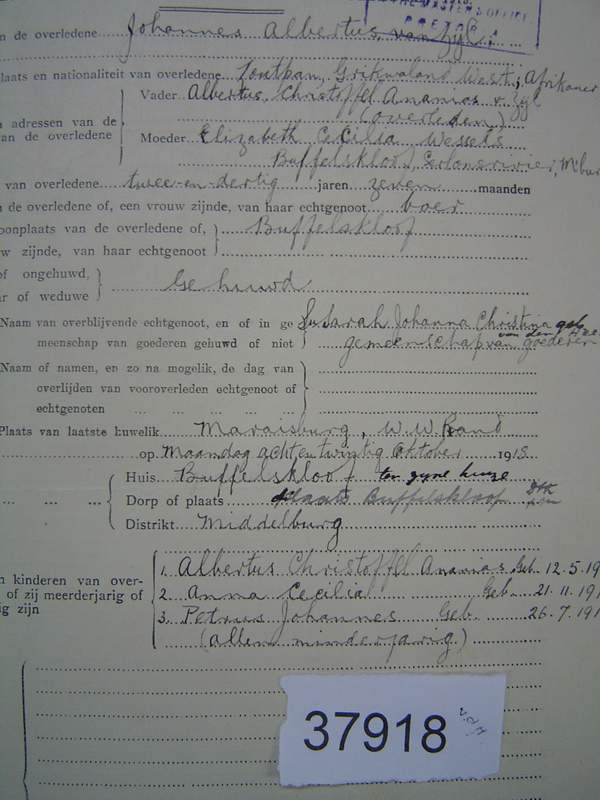 PRETOR
n de overledene Johannes Albertus van Zyl
laats en nationaliteit van overledene Zoutpan, Grikwaland West; Afrikaner
Vader Albertus Christoffel Ananias v. Zyl
n adressen van de
(overleden)
an de overledene
Moeder Elizabeth Cecilia Wessels
Buffelskloof,
van overledene twee-en-dertig jaren zeven maanden
n de overledene of, een vrouw zijnde, van haar echtgenoot boer
oonplaats van de overledene of, Buffelskloof
w zijnde, van haar echtgenoot
of ongehuwd, Gehuwd
ar of weduwe
Naam van overblijvende echtgenoot, en of in ge Sarah Johanna Christina geb.
meenschap van goederen gehuwd of niet gemeenschap van goederen
Naam of namen, en zo na mogelik, de dag van
overlijden van vooroverleden echtgenoot of
echtgenoten
Plaats van laatste huwelik Maraisburg, W.W. Rand
op Maandag acht en twintig Oktober 191
Huis Buffelskloof ten zyne huize
Dorp of plaats plaats Buffelskloof
Distrikt Middelburg
n kinderen van over-
of zij meerderjarig of
ig zijn
1. Albertus Christoffel Ananias Geb. 12.5.19
2. Anna Cecilia Geb. 21.11.191
3. Petrus Johannes Geb. 26.7.191
(allen minderjarig)
37918